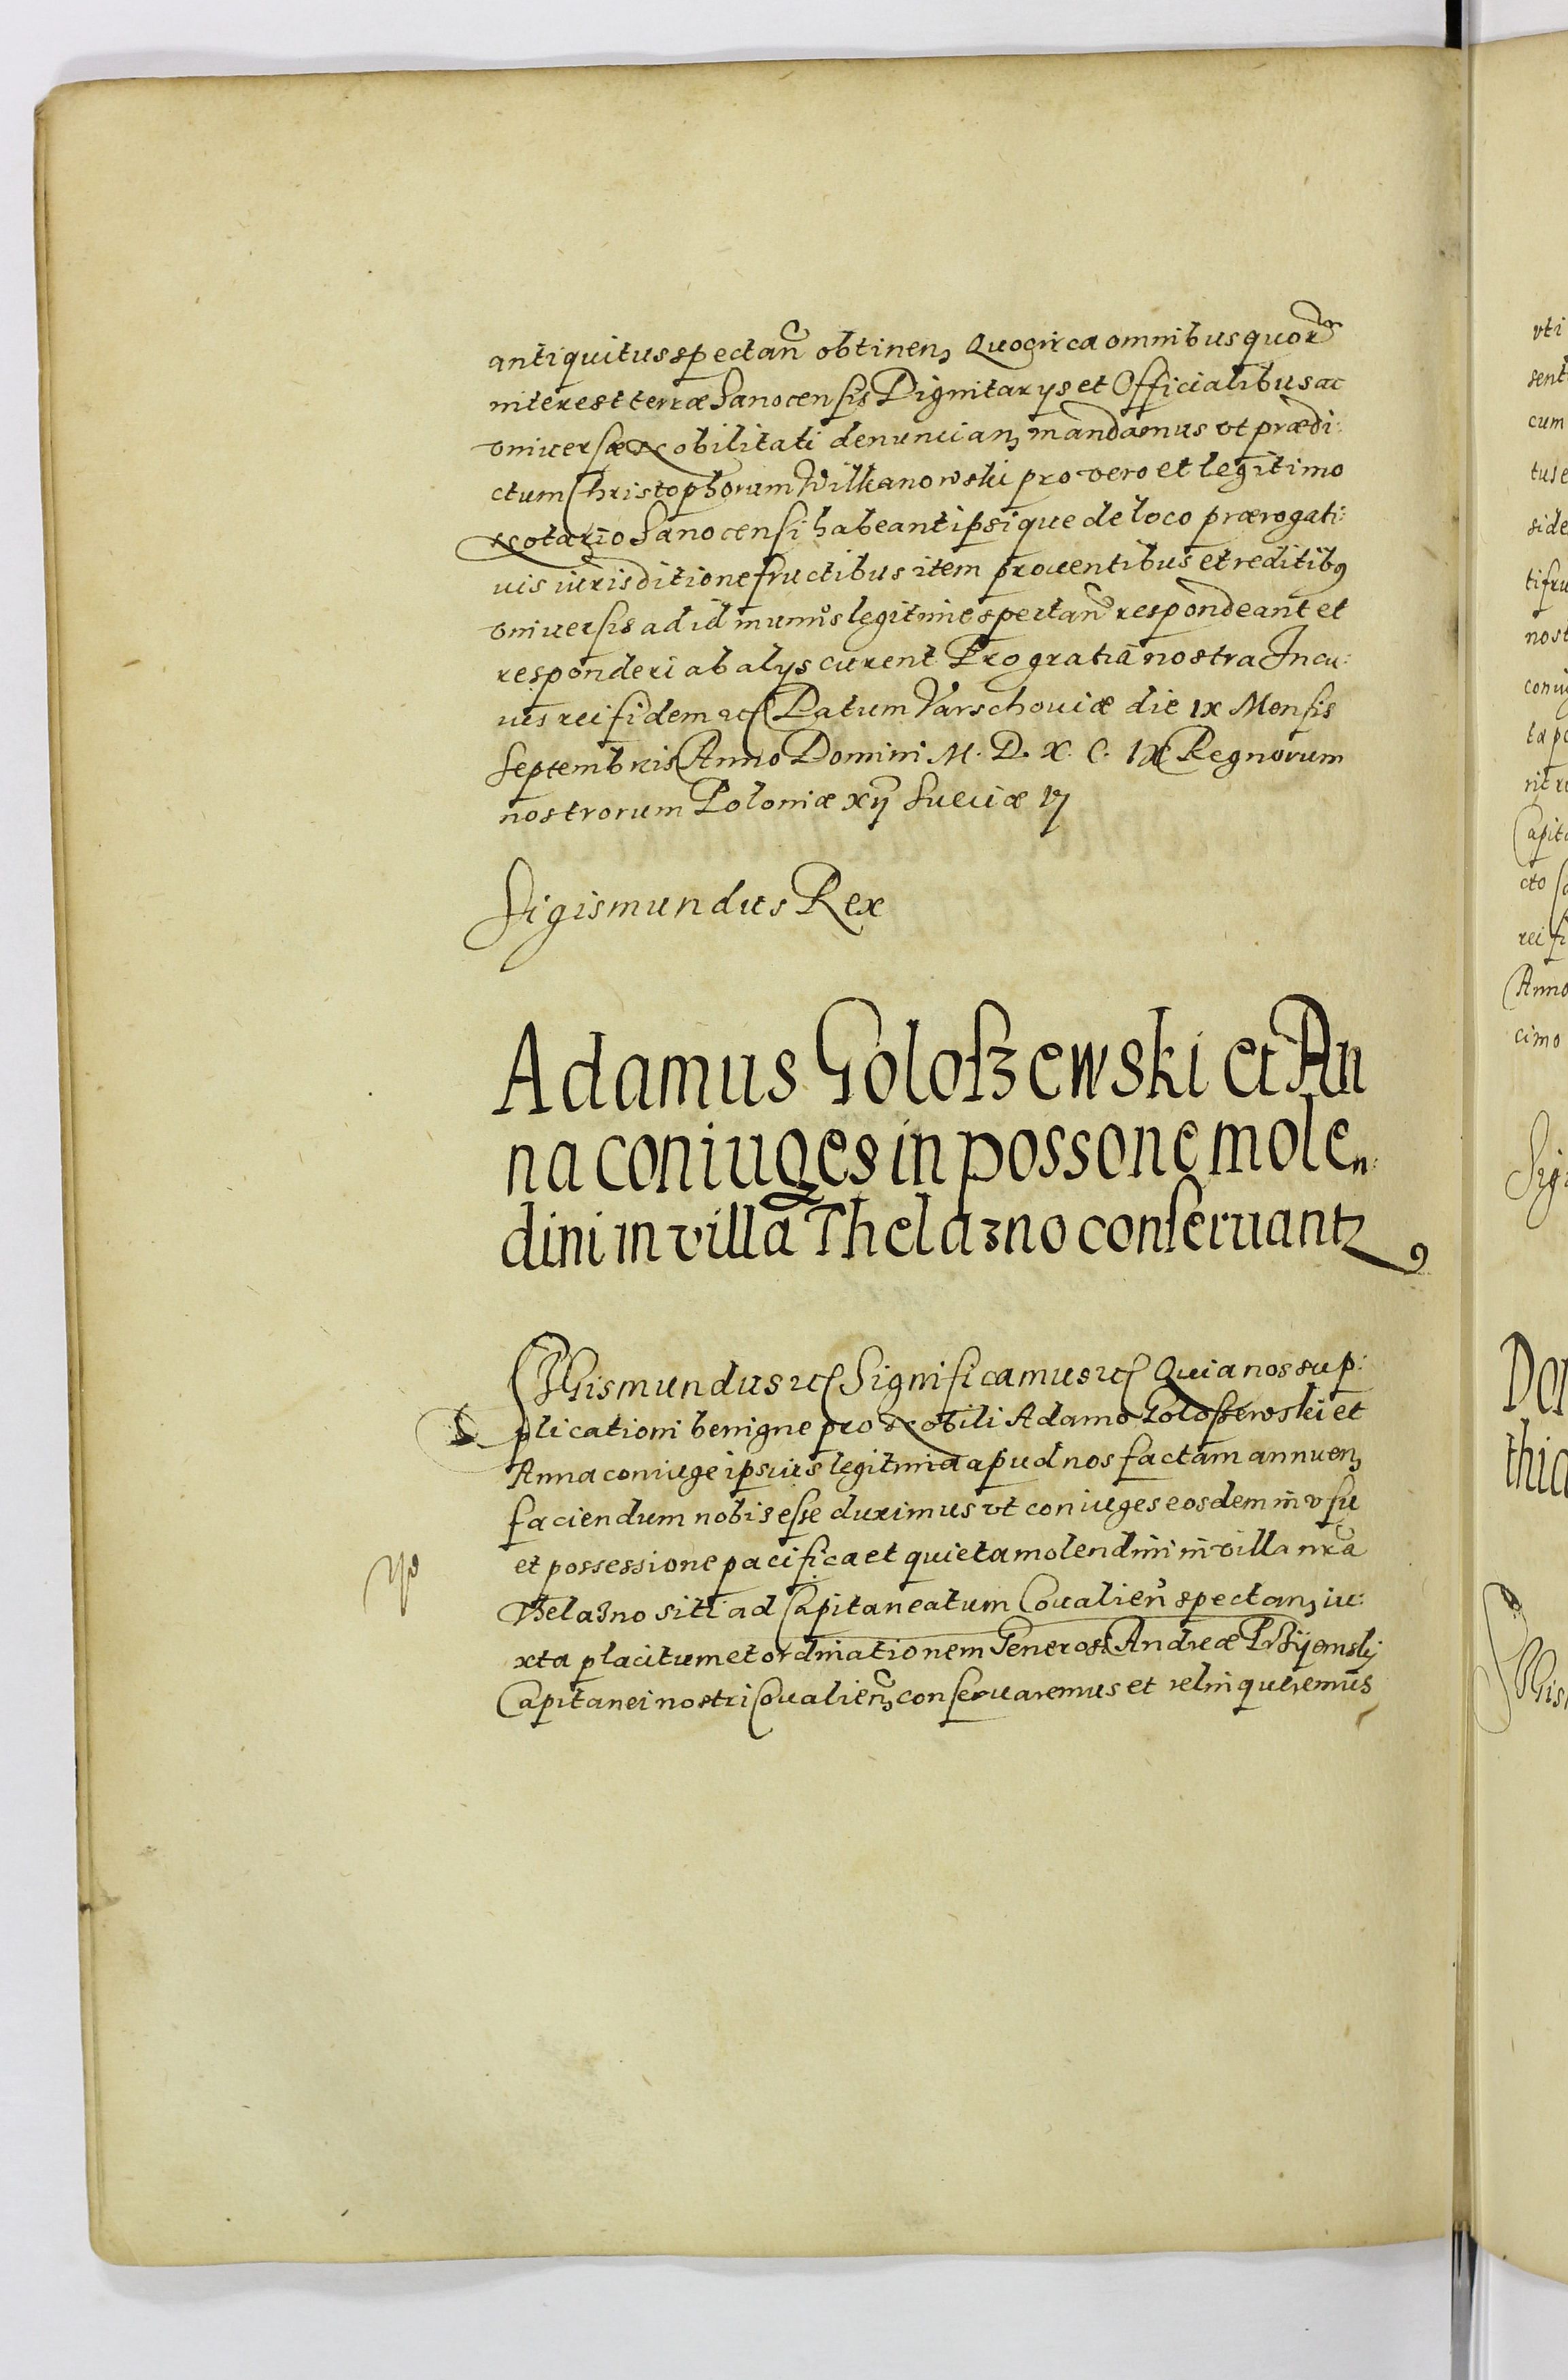 antiquitus spectan̄ obtinen, Quocirca omnibus quor
interest terræ Sanocensis Dignitarys et Officialibus ac
vniuersæ Nobilitati denuncian, mandamus vt prædi:
ctum Christophorum Wilkanowski pro vero et legitimo
Notario Sanocensi habeant ipsique de loco prærogati:
uis iurisditione fructibus item prouentibus et reditib9
vniuersis ad id munus legitime spectan̄ respondeant et
responderi ab alys curent Pro gratia nostra In cu:
ius rei fidem etc Datum Varschouiæ die IX Mensis
Septembris Anno Domini M. D. X. C. IX Regnorum
nostrorum Poloniæ xij Sueciæ vj
Sigismundus Rex
Adamus Goloszewski et An
na coniuges in possone molen:
dini in villa Thelazno conseruant
SIGismundus etc Significamus etc Quia nos sup:
plicationi benigne pro Nobili Adamo Goloszewski et
Anna coniuge ipsius legitima apud nos factam annuen,
faciendum nobis esse duximus vt coniuges eosdem in vsu
et possessione pacifica et quieta molendini in villa nr̄a
Thelazno siti ad Capitaneatum Coualien̄ spectan, iu:
xta placitum et ordinationem Generosi Andreæ Przyemskj
Capitanei nostri Coualien, conseruaremus et relinqueremus
vti
sent
cum
tus e
side
tifru
nost
coniug
ta po
rit re
Capita
cto
rei fi
Anno
cimo
Sigi
Do
thia
SIGis